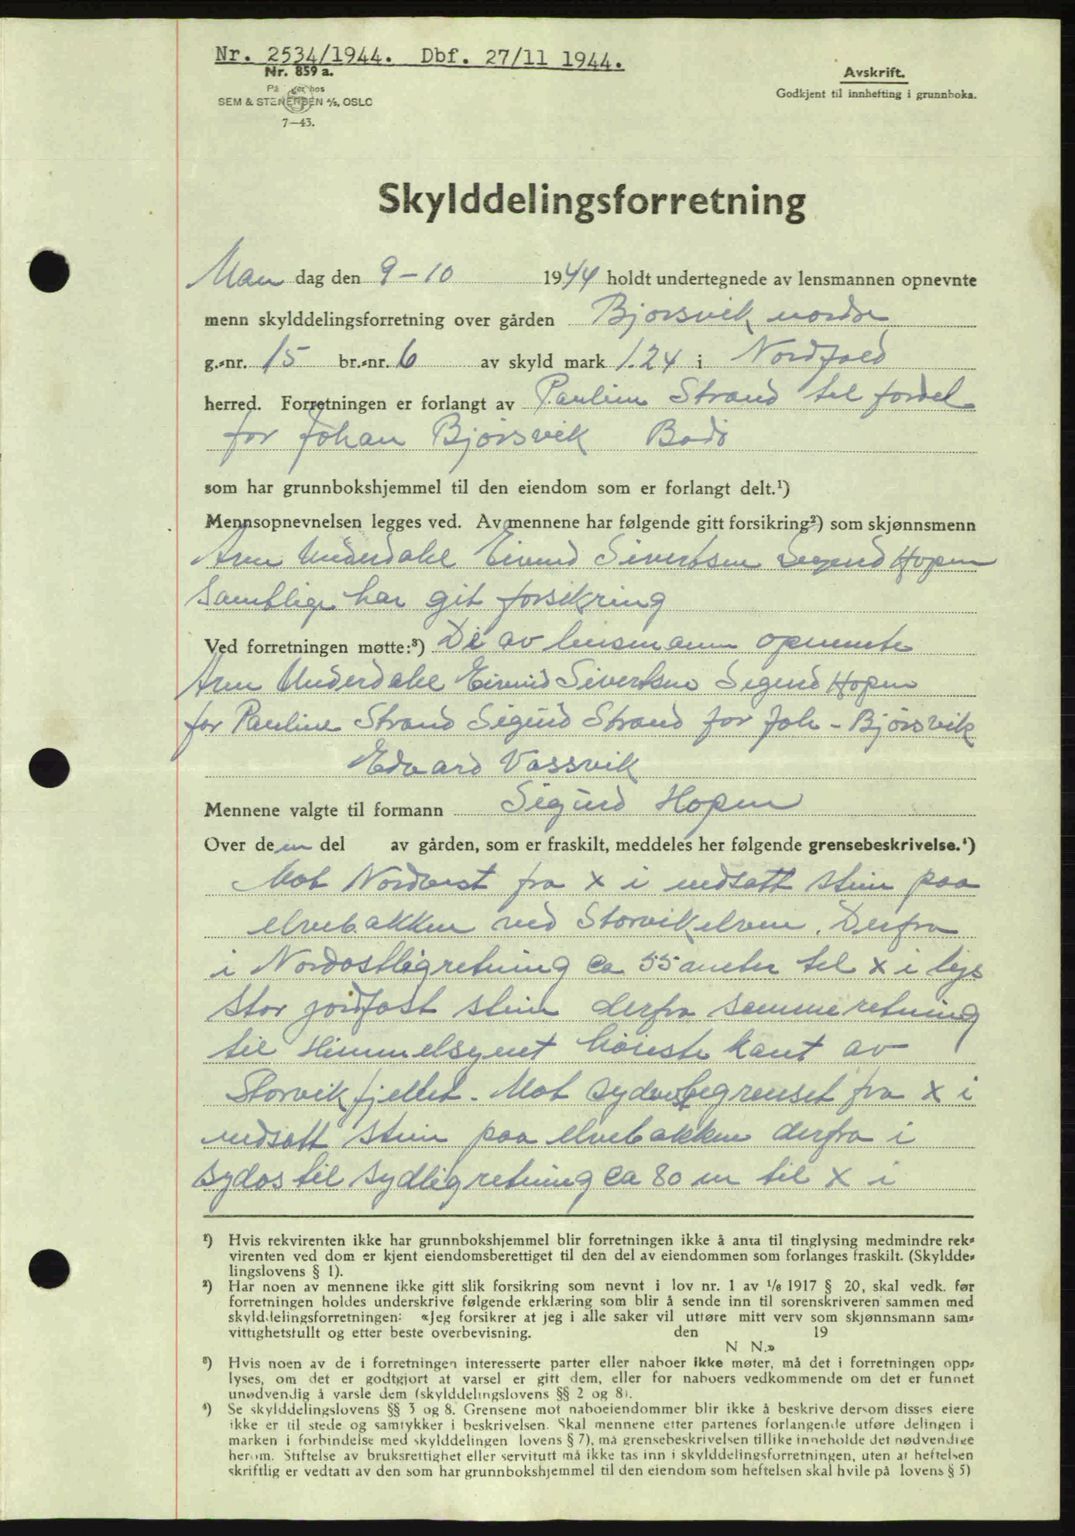 Nr. 2534/1944. Dbf. 27/11 1944.
Nr. 859 a.
På lager hos
SEM & STENERSEN A/S, OSLO
7—43.
Avskrift.
Godkjent til innhefting i grunnboka.
Skylddelingsforretning
Man dag den 9-10 1944 holdt undertegnede av lensmannen opnevnte
menn skylddelingsforretning over gården Bjørsvik nordre
g.-nr. 15 br.-nr. 6 av skyld mark 1.24 i Nordfold
herred. Forretningen er forlangt av Pauline Strand til fordel
for Johan Bjørsvik Bodø
som har grunnbokshjemmel til den eiendom som er forlangt delt.¹)
Mennsopnevnelsen legges ved. Av mennene har følgende gitt forsikring²) som skjønnsmenn
Arne Underdahl Eivind Sivertsen Segurd Hopen
Samtlige har git forsikring
Ved forretningen møtte:³) De av lensmann opnevnte
Arne Underdahl Eivind Sivertsen Segurd Hopen
for Pauline Strand Sigurd Strand for Joh - Bjørsvik
Edvard Vassvik
Mennene valgte til formann Sigurd Hopen
Over den del av gården, som er fraskilt, meddeles her følgende grensebeskrivelse.⁴)
Mot Nordvest fra x i nedsatt stein paa
elvebakken ved Storvikelven. Derfra
i Nordostligretning ca 55 meter til x i
stor jordfast stein derfra samme retning
til Himmelsynet høieste kant av
Storvikfjellet. Mot sydvest begrenset fra x i
nedsatt stein paa elvebakken derfra i
sydos til sydligretning ca 80 m til x i
¹) Hvis rekvirenten ikke har grunnbokshjemmel blir forretningen ikke å anta til tinglysing medmindre rek-
virenten ved dom er kjent eiendomsberettiget til den del av eiendommen som forlanges fraskilt. (Skyldde-
lingslovens § 1).
²) Har noen av mennene ikke gitt slik forsikring som nevnt i lov nr. 1 av 1/6 1917 § 20, skal vedk. før
forretningen holdes underskrive følgende erklæring som blir å sende inn til sorenskriveren sammen med
skylddelingsforretningen: «Jeg forsikrer at jeg i alle saker vil utføre mitt verv som skjønnsmann sam-
vittighetsfullt og etter beste overbevisning. den 19
N N.»
³) Hvis noen av de i forretningen interesserte parter eller naboer ikke møter, må det i forretningen opp-
lyses, om det er godtgjort at varsel er gitt dem, eller for naboers vedkommende om det er funnet
unødvendig å varsle dem (skylddelingslovens §§ 2 og 8).
⁴) Se skylddelingslovens §§ 3 og 8. Grensene mot naboeiendommer blir ikke å beskrive dersom disses eiere
ikke er til stede og samtykker i beskrivelsen. Skal mennene etter partenes forlangende utføre delingen i
marken i forbindelse med skylddelingen lovens § 7), må grensebeskrivelsen tillike inneholde det nødvendige
herom. Stiftelse av bruksrettighet eller servitutt må ikke tas inn i skylddelingsforretningen, uten at heftelsen
skriftlig er vedtatt av den som har grunnbokshjemmel til den eiendom som heftelsen skal hvile på lovens § 5)